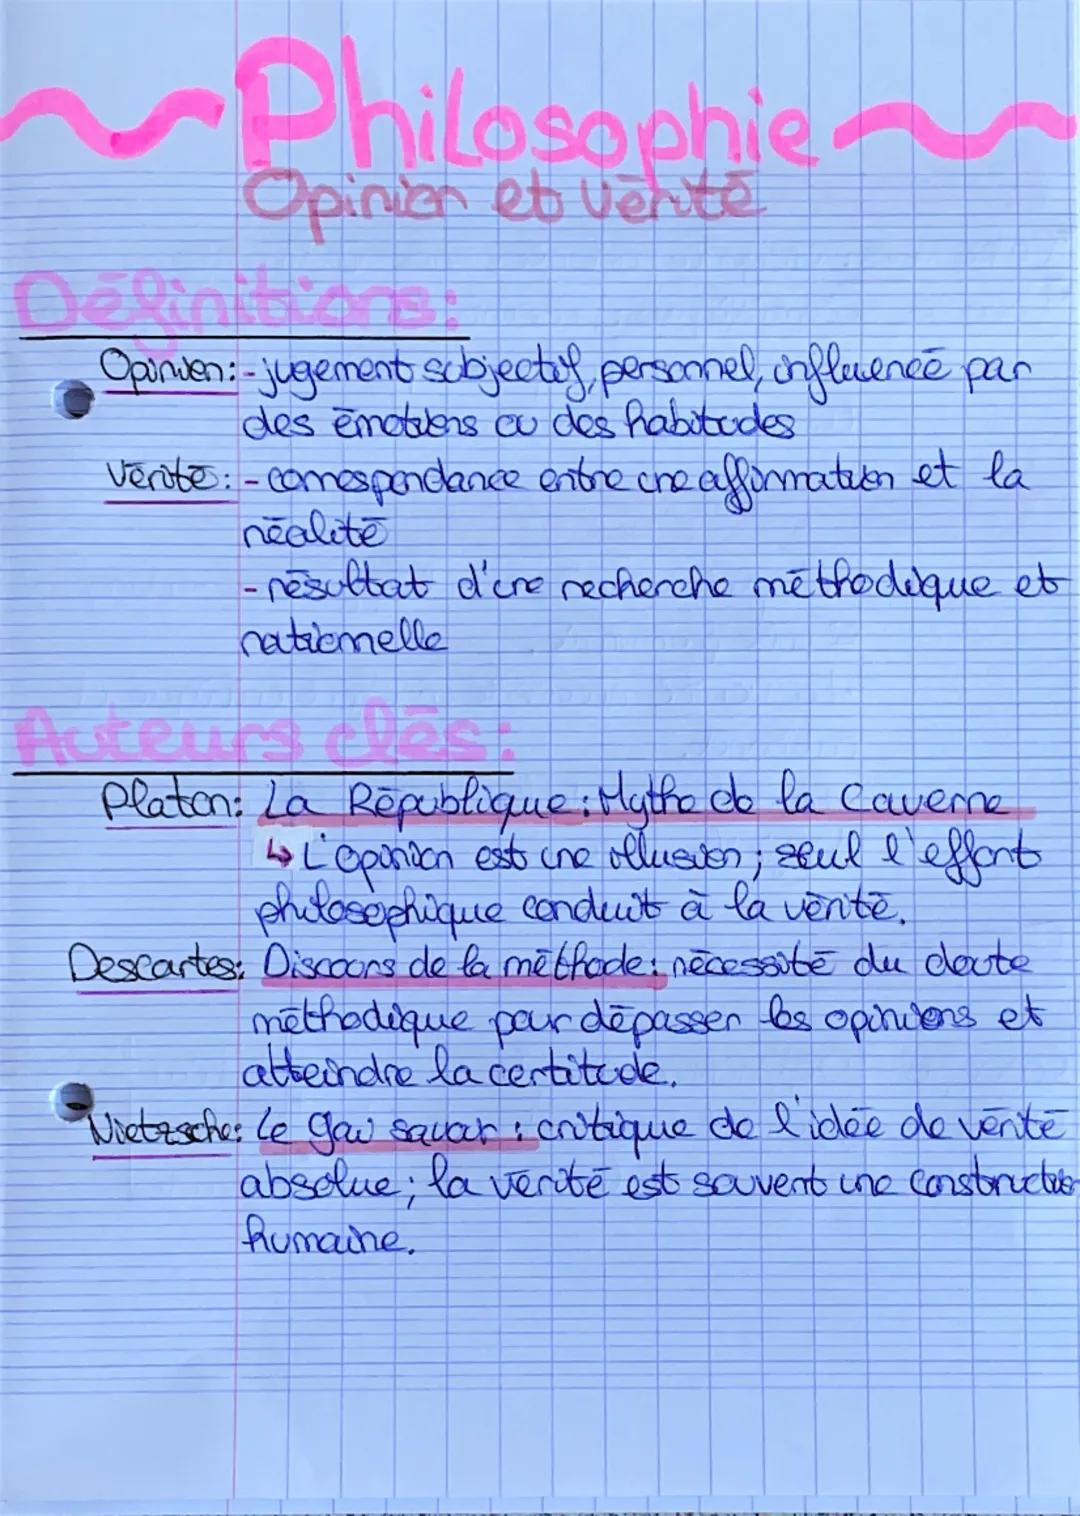 Philosophie
Opinion et vérité
Définitions:
Opinion: - jugement subjectif, personnel, influencé par
des émotions ou des habitudes
Vérité: - correspondance entre une affirmation et la
réalité
- résultat d'une recherche méthodique et
rationnelle
Auteurs clés:
Platon: La République: Mythe de la Caverne
↳ L'opinion est une illusion; seul l'effort
philosophique conduit à la vérité.
Descartes: Discours de la méthode: nécessité du doute
méthodique pour dépasser les opinions et
atteindre la certitude.
Nietzsche: Le gai savoir: critique de l'idée de vérité
absolue; la vérité est souvent une construction
humaine.